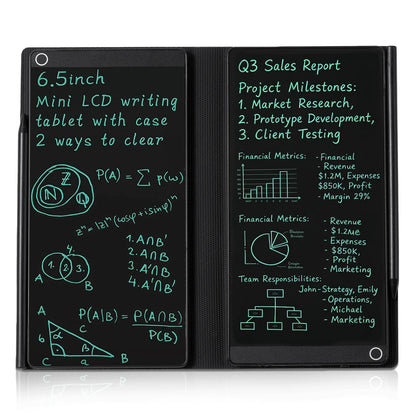 6.5inch
Mini LCD writing
tablet with case
2 ways to clear
Z
N
Q
P(A) = Σ p(ω)
zⁿ = |z|ⁿ (cosφ + i sinφ)ⁿ
4.
A
1.
2
3.
B
1. A∩B'
2. A∩B
3. A'∩B
4. A'∩B'
P(A|B) = P(A∩B)
P(B)
A
b
α
c
C
a
β
B
Q3 Sales Report
Project Milestones:
1. Market Research,
2. Prototype Development,
3. Client Testing
Financial Metrics:
- Financial
- Revenue
$1.2M, Expenses
$850K, Profit
- Margin 29%
Financial Metrics:
- Revenue
- Expenses
- $850K,
- Profit
- Marketing
Team Responsibilities:
John-Strategy, Emily
- Operations,
Michael
- Marketing